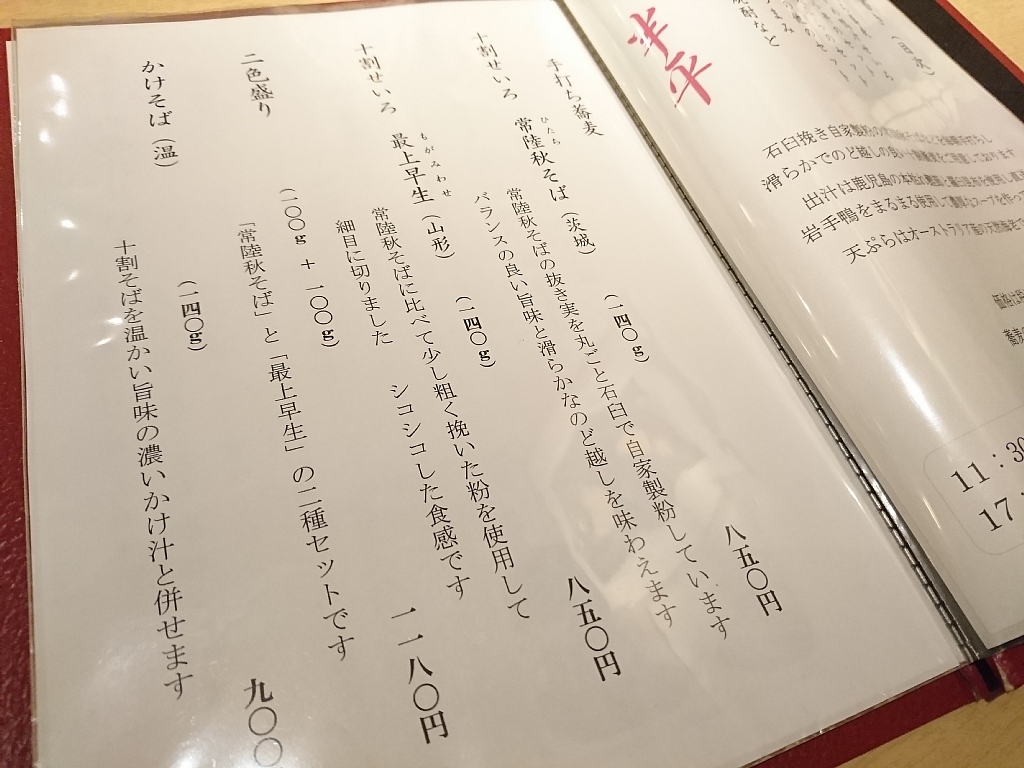 半年
焼酎など
石臼挽き自家製粉の
滑らかでのど越しの良い
出汁は鹿児島の本枯
岩手鴨をまるまる使用して
天ぷらはオーストラリア
11：30
17：
手打ち蕎麦
十割せいろ 常陸秋そば（茨城） （一四〇ｇ） 八五〇円
ひたち
常陸秋そばの抜き実を丸ごと石臼で自家製粉しています
バランスの良い旨味と滑らかなのど越しを味わえます
十割せいろ 最上早生（山形） （一四〇ｇ） 八五〇円
もがみわせ
常陸秋そばに比べて少し粗く挽いた粉を使用して
細目に切りました シコシコした食感です
二色盛り （一〇〇ｇ ＋ 一〇〇ｇ） 一一八〇円
「常陸秋そば」と「最上早生」の二種セットです
かけそば（温） （一四〇ｇ） 九〇〇
十割そばを温かい旨味の濃いかけ汁と併せます